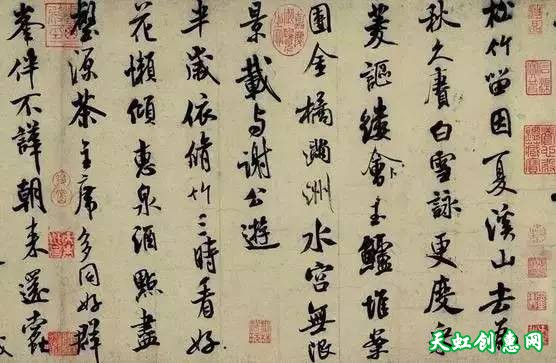 松竹留因夏溪山去為
秋久賡白雪詠更度采
菱謳縷會玉鱸堆案
團金橘滿洲水宮無限
景載与謝公遊
半歲依脩竹三時看好
花懶傾惠泉酒點盡
壑源茶主席多同好群
峯伴不譁朝來還蠹
天虹创惠网